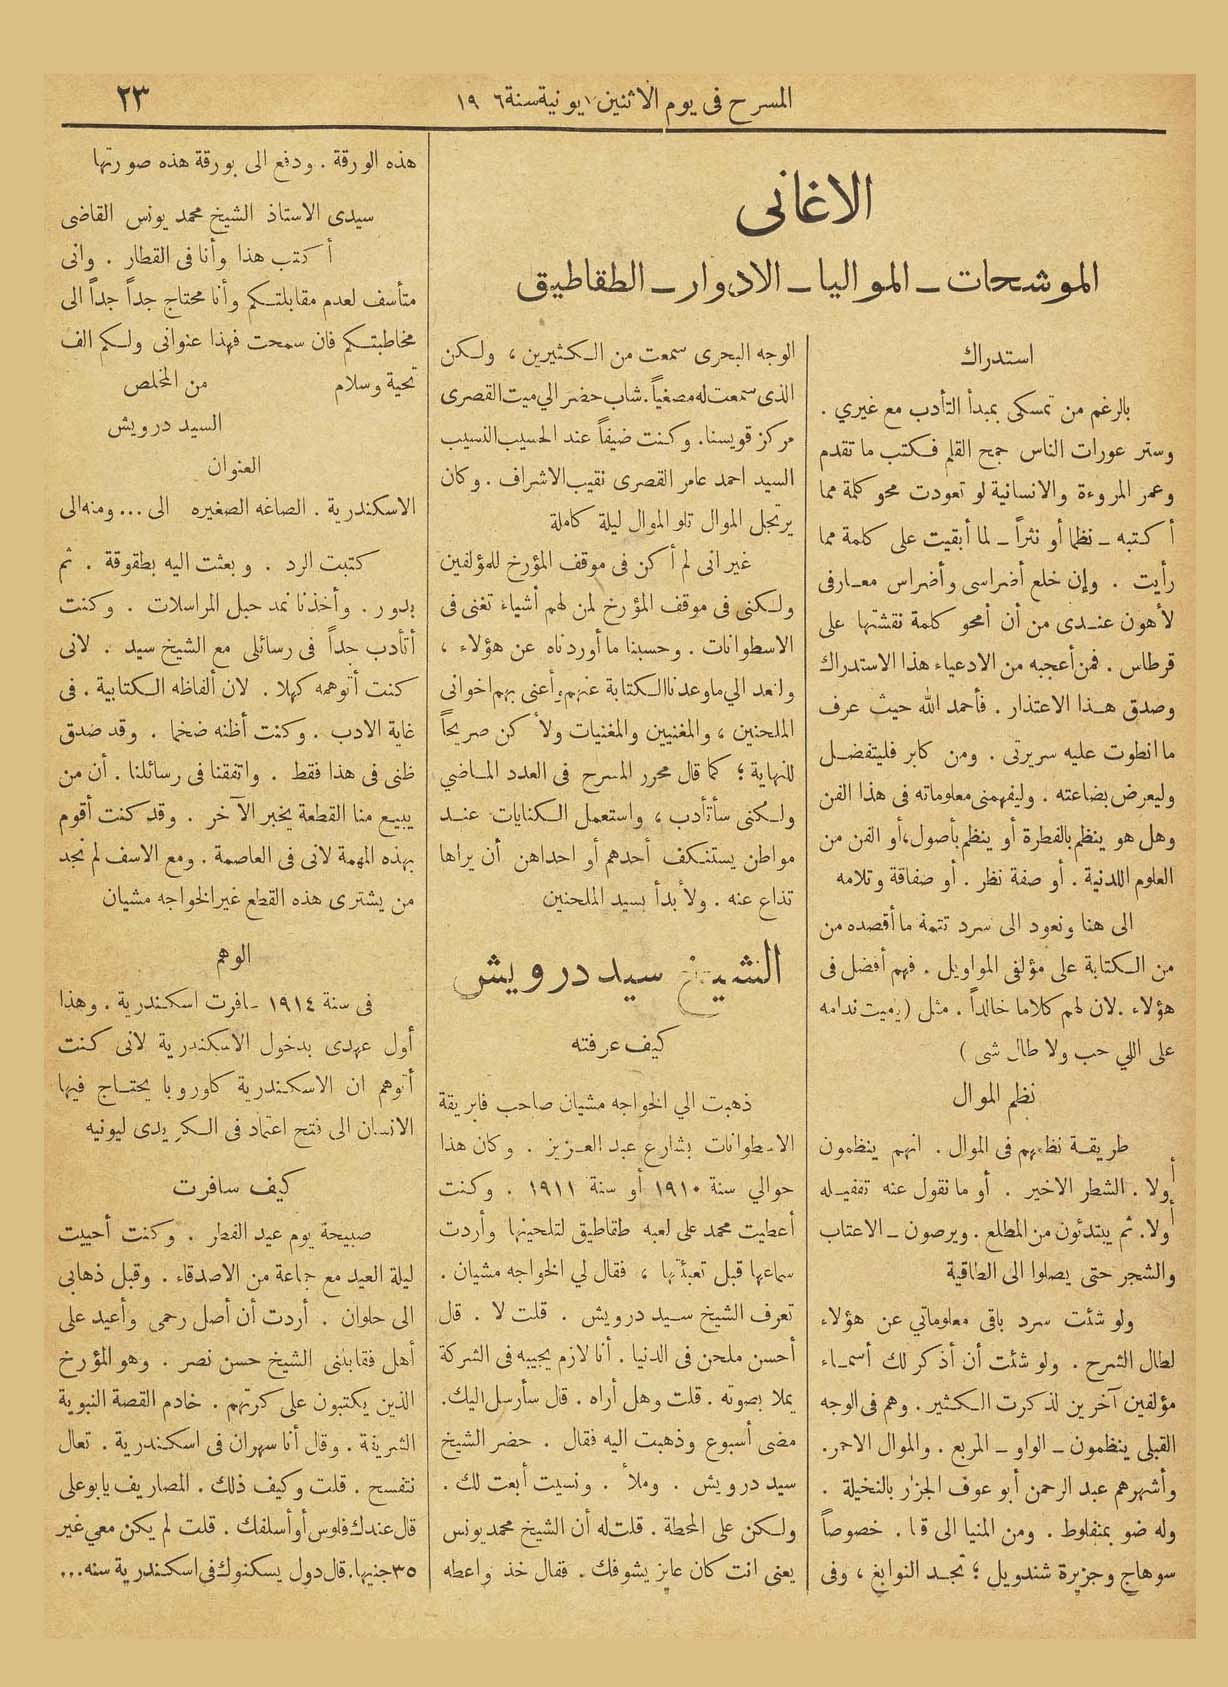 المسرح فى يوم الاثنين ١ يونية سنة ١٩ ٦
٢٣
الاغانى
الموشحات ــ المواليا ــ الادوار ــ الطقاطيق
استدراك
بالرغم من تمسكى بمبدأ التأدب مع غيري .
وستر عورات الناس جمح القلم فكتب ما تقدم
وعمر المروءة والانسانية لو تعودت محو كلمة مما
أكتبه ــ نظما أو نثراً ــ لما أبقيت على كلمة مما
رأيت . وإن خلع أضراسى وأضراس معارفى
لأهون عندى من أن أمحو كلمة نقشتها على
قرطاس . فمن أعجبه من الادعياء هذا الاستدراك
وصدق هذا الاعتذار . فأحمد الله حيث عرف
ما انطوت عليه سريرتى . ومن كابر فليتفضل
وليعرض بضاعته . وليفهمنى معلوماته فى هذا الفن
وهل هو ينظم بالفطرة أو ينظم بأصول، أو الفن من
العلوم اللدنية . أو صفة نظر . أو صفاقة وتلامه
الى هنا ونعود الى سرد تتمة ما أقصده من
من الكتابة على مؤلفى المواويل . فهم أفضل فى
هؤلاء . لان لهم كلاما خالداً . مثل ( يميت ندامه
على اللي حب ولا طال شى )
نظم الموال
طريقة نظمهم فى الموال . انهم ينظمون
أولا . الشطر الاخير . أو ما نقول عنه تقفيله
أولا. ثم يبتدئون من المطلع . ويرصون ــ الاعتاب
والشجر حتى يصلوا الى الطاقية
ولو شئت سرد باقى معلوماتي عن هؤلاء
لطال الشرح . ولو شئت أن أذكر لك أسماء
مؤلفين آخرين لذكرت الكثير . وهم فى الوجه
القبلى ينظمون ــ الواو ــ المربع . والموال الاحمر.
وأشهرهم عبد الرحمن أبو عوف الجزار بالنخيلة .
وله ضو بمنفلوط . ومن المنيا الى قنا . خصوصاً
سوهاج وجزيرة شندويل ؛ تجد النوابغ ، وفى
الوجه البحرى سمعت من الكثيرين ، ولكن
الذى سمعت له مصغياً . شاب حضر الي ميت القصرى
مركز قويسنا. وكنت ضيفاً عند الحسيب النسيب
السيد احمد عامر القصرى نقيب الاشراف . وكان
يرتجل الموال تلو الموال ليلة كاملة
غير انى لم أكن فى موقف المؤرخ للمؤلفين
ولكنى فى موقف المؤرخ لمن لهم أشياء تغنى فى
الاسطوانات . وحسبنا ما أوردناه عن هؤلاء ،
ولنعد الي ما وعدنا الكتابة عنهم وأعنى بهم اخوانى
الملحنين ، والمغنيين والمغنيات ولأكن صريحاً
للنهاية ؛ كما قال محرر المسرح فى العدد الماضي
ولكنى سأتأدب ، واستعمل الكنايات عند
مواطن يستنكف أحدهم أو احداهن أن يراها
تذاع عنه . ولأبدأ بسيد الملحنين
الشيخ سيد درويش
كيف عرفته
ذهبت الي الخواجه مشيان صاحب فابريقة
الاسطوانات بشارع عبد العزيز . وكان هذا
حوالي سنة ١٩١٠ أو سنة ١٩١١ . وكنت
أعطيت محمد على لعبه طقاطيق لتلحينها وأردت
سماعها قبل تعبئتها ، فقال لي الخواجه مشيان .
تعرف الشيخ سيد درويش . قلت لا . قل
أحسن ملحن فى الدنيا . أنا لازم يجيبه فى الشركة
يملا بصوته . قلت وهل أراه . قل سأرسل اليك.
مضى أسبوع وذهبت اليه فقال . حضر الشيخ
سيد درويش . وملأ . ونسيت أبعت لك .
ولكن على المحطة . قلت له أن الشيخ محمد يونس
يعنى انت كان عايز يشوفك . فقال خذ واعطه
هذه الورقة . ودفع الى بورقة هذه صورتها
سيدى الاستاذ الشيخ محمد يونس القاضى
أكتب هذا وأنا فى القطار . وانى
متأسف لعدم مقابلتكم وأنا محتاج جداً جداً الى
مخاطبتكم فان سمحت فهذا عنوانى ولكم الف
تحية وسلام من المخلص
السيد درويش
العنوان
الاسكندرية . الصاغه الصغيره الى ... ومنه الى
كتبت الرد . وبعثت اليه بطقوقة . ثم
بدور . وأخذنا نمد حبل المراسلات . وكنت
أتأدب جداً فى رسائلى مع الشيخ سيد . لانى
كنت أتوهمه كهلا . لان ألفاظه الكتابية . فى
غاية الادب . وكنت أظنه ضخما . وقد صدق
ظنى فى هذا فقط . واتفقنا فى رسائلنا . أن من
يبيع منا القطعة يخبر الآخر . وقد كنت أقوم
بهذه المهمة لانى فى العاصمة . ومع الاسف لم نجد
من يشترى هذه القطع غير الخواجه مشيان
الوهم
فى سنة ١٩١٤ سافرت اسكندرية . وهذا
أول عهدى بدخول الاسكندرية لانى كنت
أتوهم ان الاسكندرية كاوروبا يحتاج فيها
الانسان الى فتح اعتماد فى الكريدى ليونيه
كيف سافرت
صبيحة يوم عيد الفطر . وكنت أحييت
ليلة العيد مع جماعة من الاصدقاء . وقبل ذهابى
الى حلوان . أردت أن أصل رحمى وأعيد على
أهل فقابلنى الشيخ حسن نصر . وهو المؤرخ
الذين يكتبون على كرتهم . خادم القصة النبوية
الشريفة . وقال أنا سهران فى اسكندرية . تعال
نتفسح . قلت وكيف ذلك . المصاريف يابو على
قال عندك فلوس أو أسلفك . قلت لم يكن معي غير
٣٥ جنيها. قال دول يسكنوك فى اسكندرية سنه...